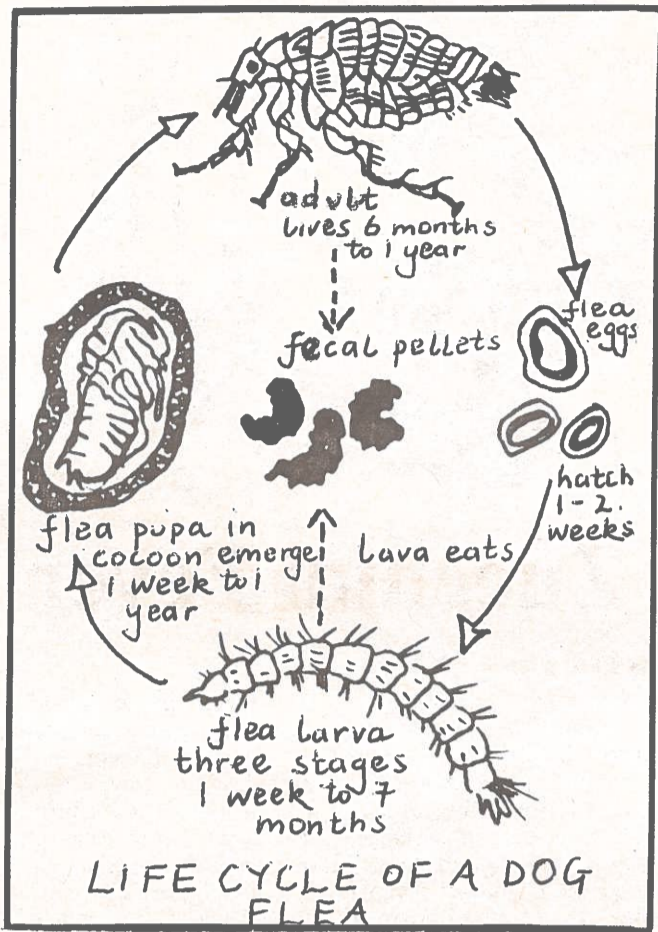 adult
lives 6 months
to 1 year
fecal pellets
flea
eggs
hatch
1-2.
weeks
flea pupa in
cocoon emerge
1 week to 1
year
lava eats
flea larva
three stages
1 week to 7
months
LIFE CYCLE OF A DOG
FLEA